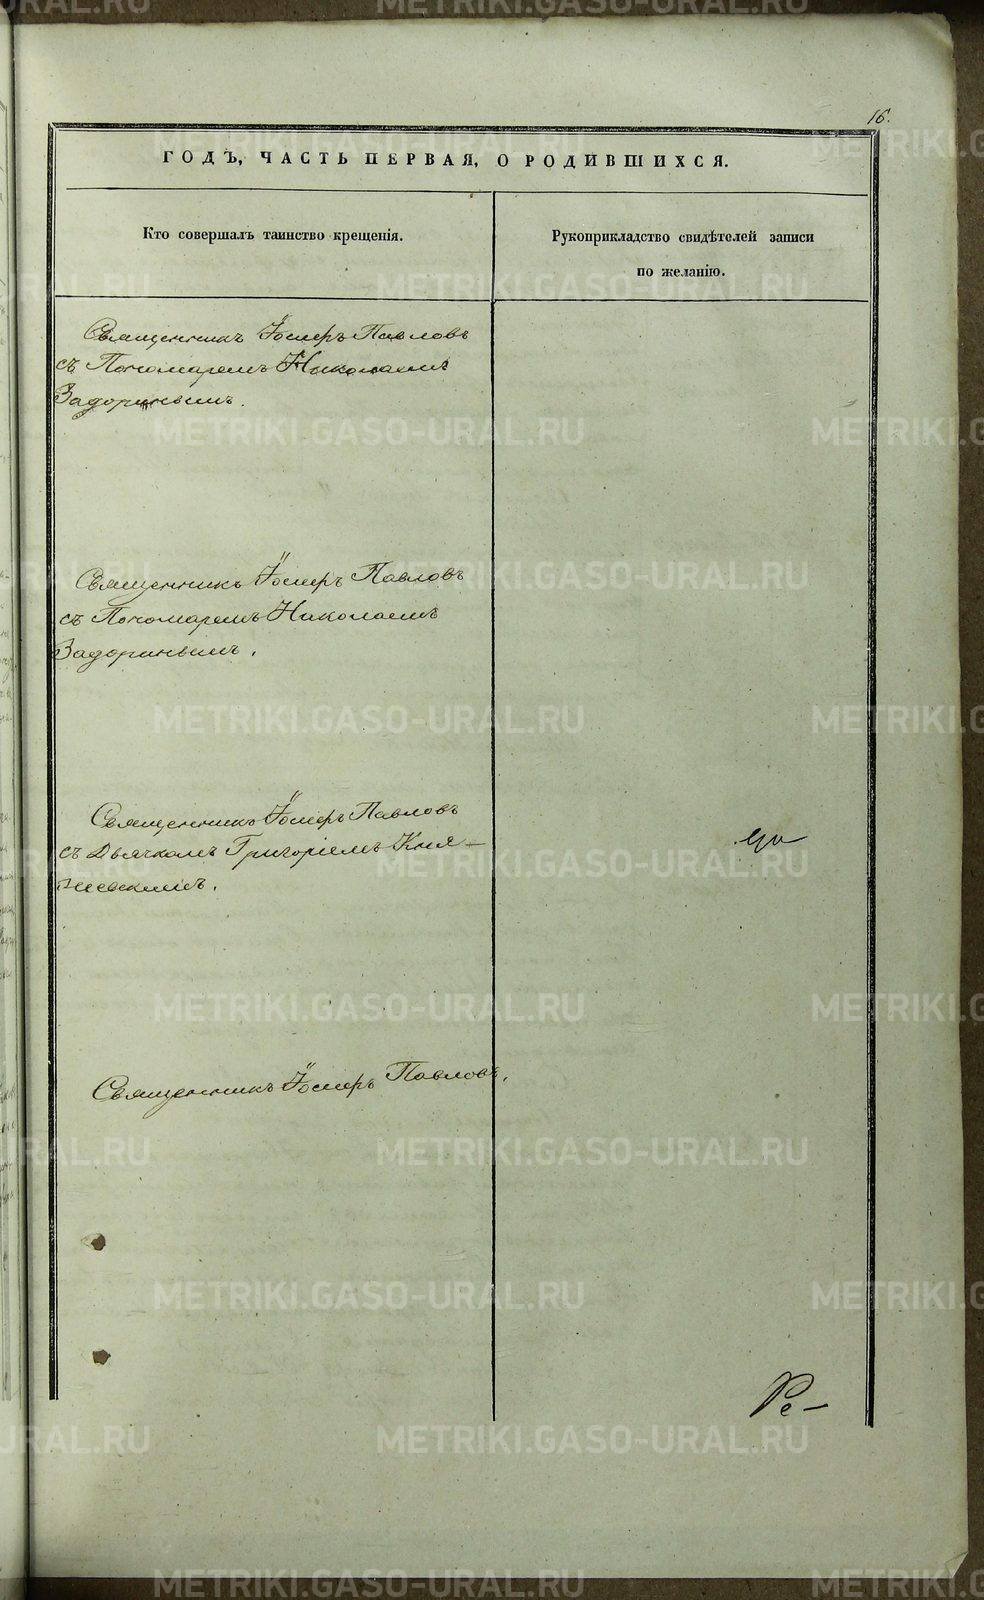 16.
ГОДЪ, ЧАСТЬ ПЕРВАЯ, О РОДИВШИХСЯ.
Кто совершалъ таинство крещенія.
Рукоприкладство свидѣтелей записи
по желанію.
Священникъ Іосифъ Павловъ
съ Пономаремъ Николаемъ
Задоринымъ.
Священникъ Іосифъ Павловъ
съ Пономаремъ Николаемъ
Задоринымъ.
Священникъ Іосифъ Павловъ
съ Дьячкомъ Григоріемъ Кня-
жевскимъ.
Священникъ Іосифъ Павловъ.
Ре-
METRIKI.GASO-URAL.RU